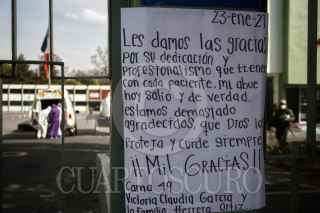 23-ene-21
Les damos las gracias
por su dedicación y
profesionalismo que tienen
con cada paciente, mi abue
hoy salio y de verdad
estamos demasiado
agradecidos, que Dios los
Proteja y cuide siempre
¡¡Mil Gracias!!
Cama 49
Victoria Claudia García y
la Familia Herrera Ortiz
CUARTOSCURO